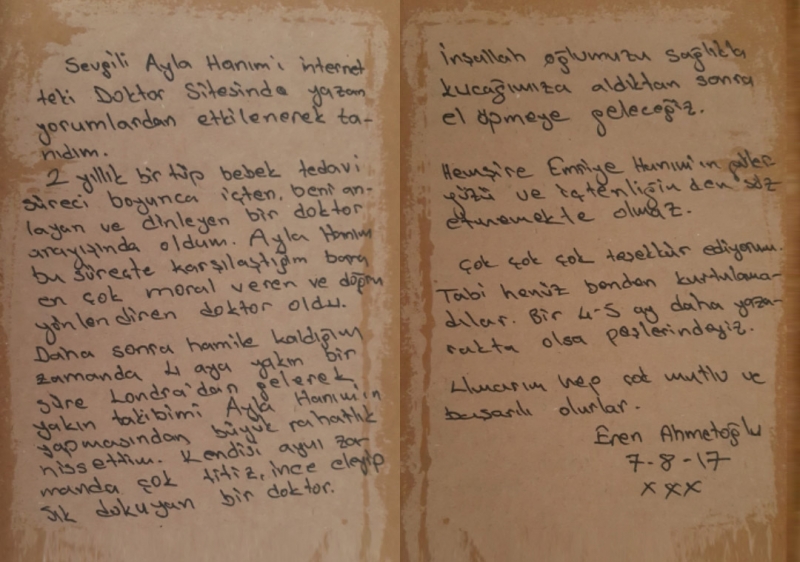 Sevgili Ayla Hanım'ı internet
teki Doktor Sitesinde yazan
yorumlardan etkilenerek ta-
nıdım.
2 yıllık bir tüp bebek tedavi
süreci boyunca içten, beni an-
layan ve dinleyen bir doktor
arayışında oldum. Ayla Hanım
bu süreçte karşılaştığım bana
en çok moral veren ve doğru
yönlendiren doktor oldu.
Daha sonra hamile kaldığım
zamanda 4 aya yakın bir
süre Londra'dan gelerek
yakın takibimi Ayla Hanım'ın
yapmasından büyük rahatlık
hissettim. Kendisi aynı za-
manda çok titiz, ince eleyip
sık dokuyan bir doktor.
İnşallah oğlumuzu sağlıkla
kucağımıza aldıktan sonra
el öpmeye geleceğiz.
Hemşire Emriye Hanım'ın güler
yüzü ve içtenliğinden söz
etmemekte olmaz.
Çok çok çok teşekkür ediyorum.
Tabi henüz benden kurtulama-
dılar. Bir 4-5 ay daha yaza-
rakta olsa peşlerindeyiz.
Umarım hep çok mutlu ve
başarılı olurlar.
Eren Ahmetoğlu
7-8-17
x x x